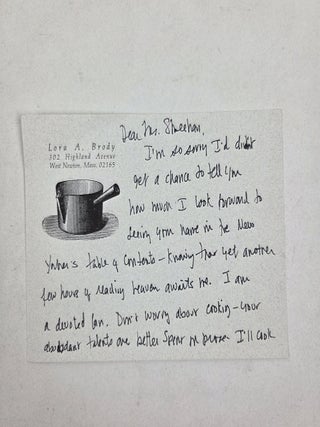 Lora A. Brody
302 Highland Avenue
West Newton, Mass. 02165
Dear Mr. Sheehan,
I'm so sorry I'd didn't
get a chance to tell you
how much I look forward to
seeing your name in the New
Yorker's table of contents – knowing that yet another
few hours of reading heaven awaits me. I am
a devoted fan. Don't worry about cooking – your
abundant talents are better spent on prose I'll cook